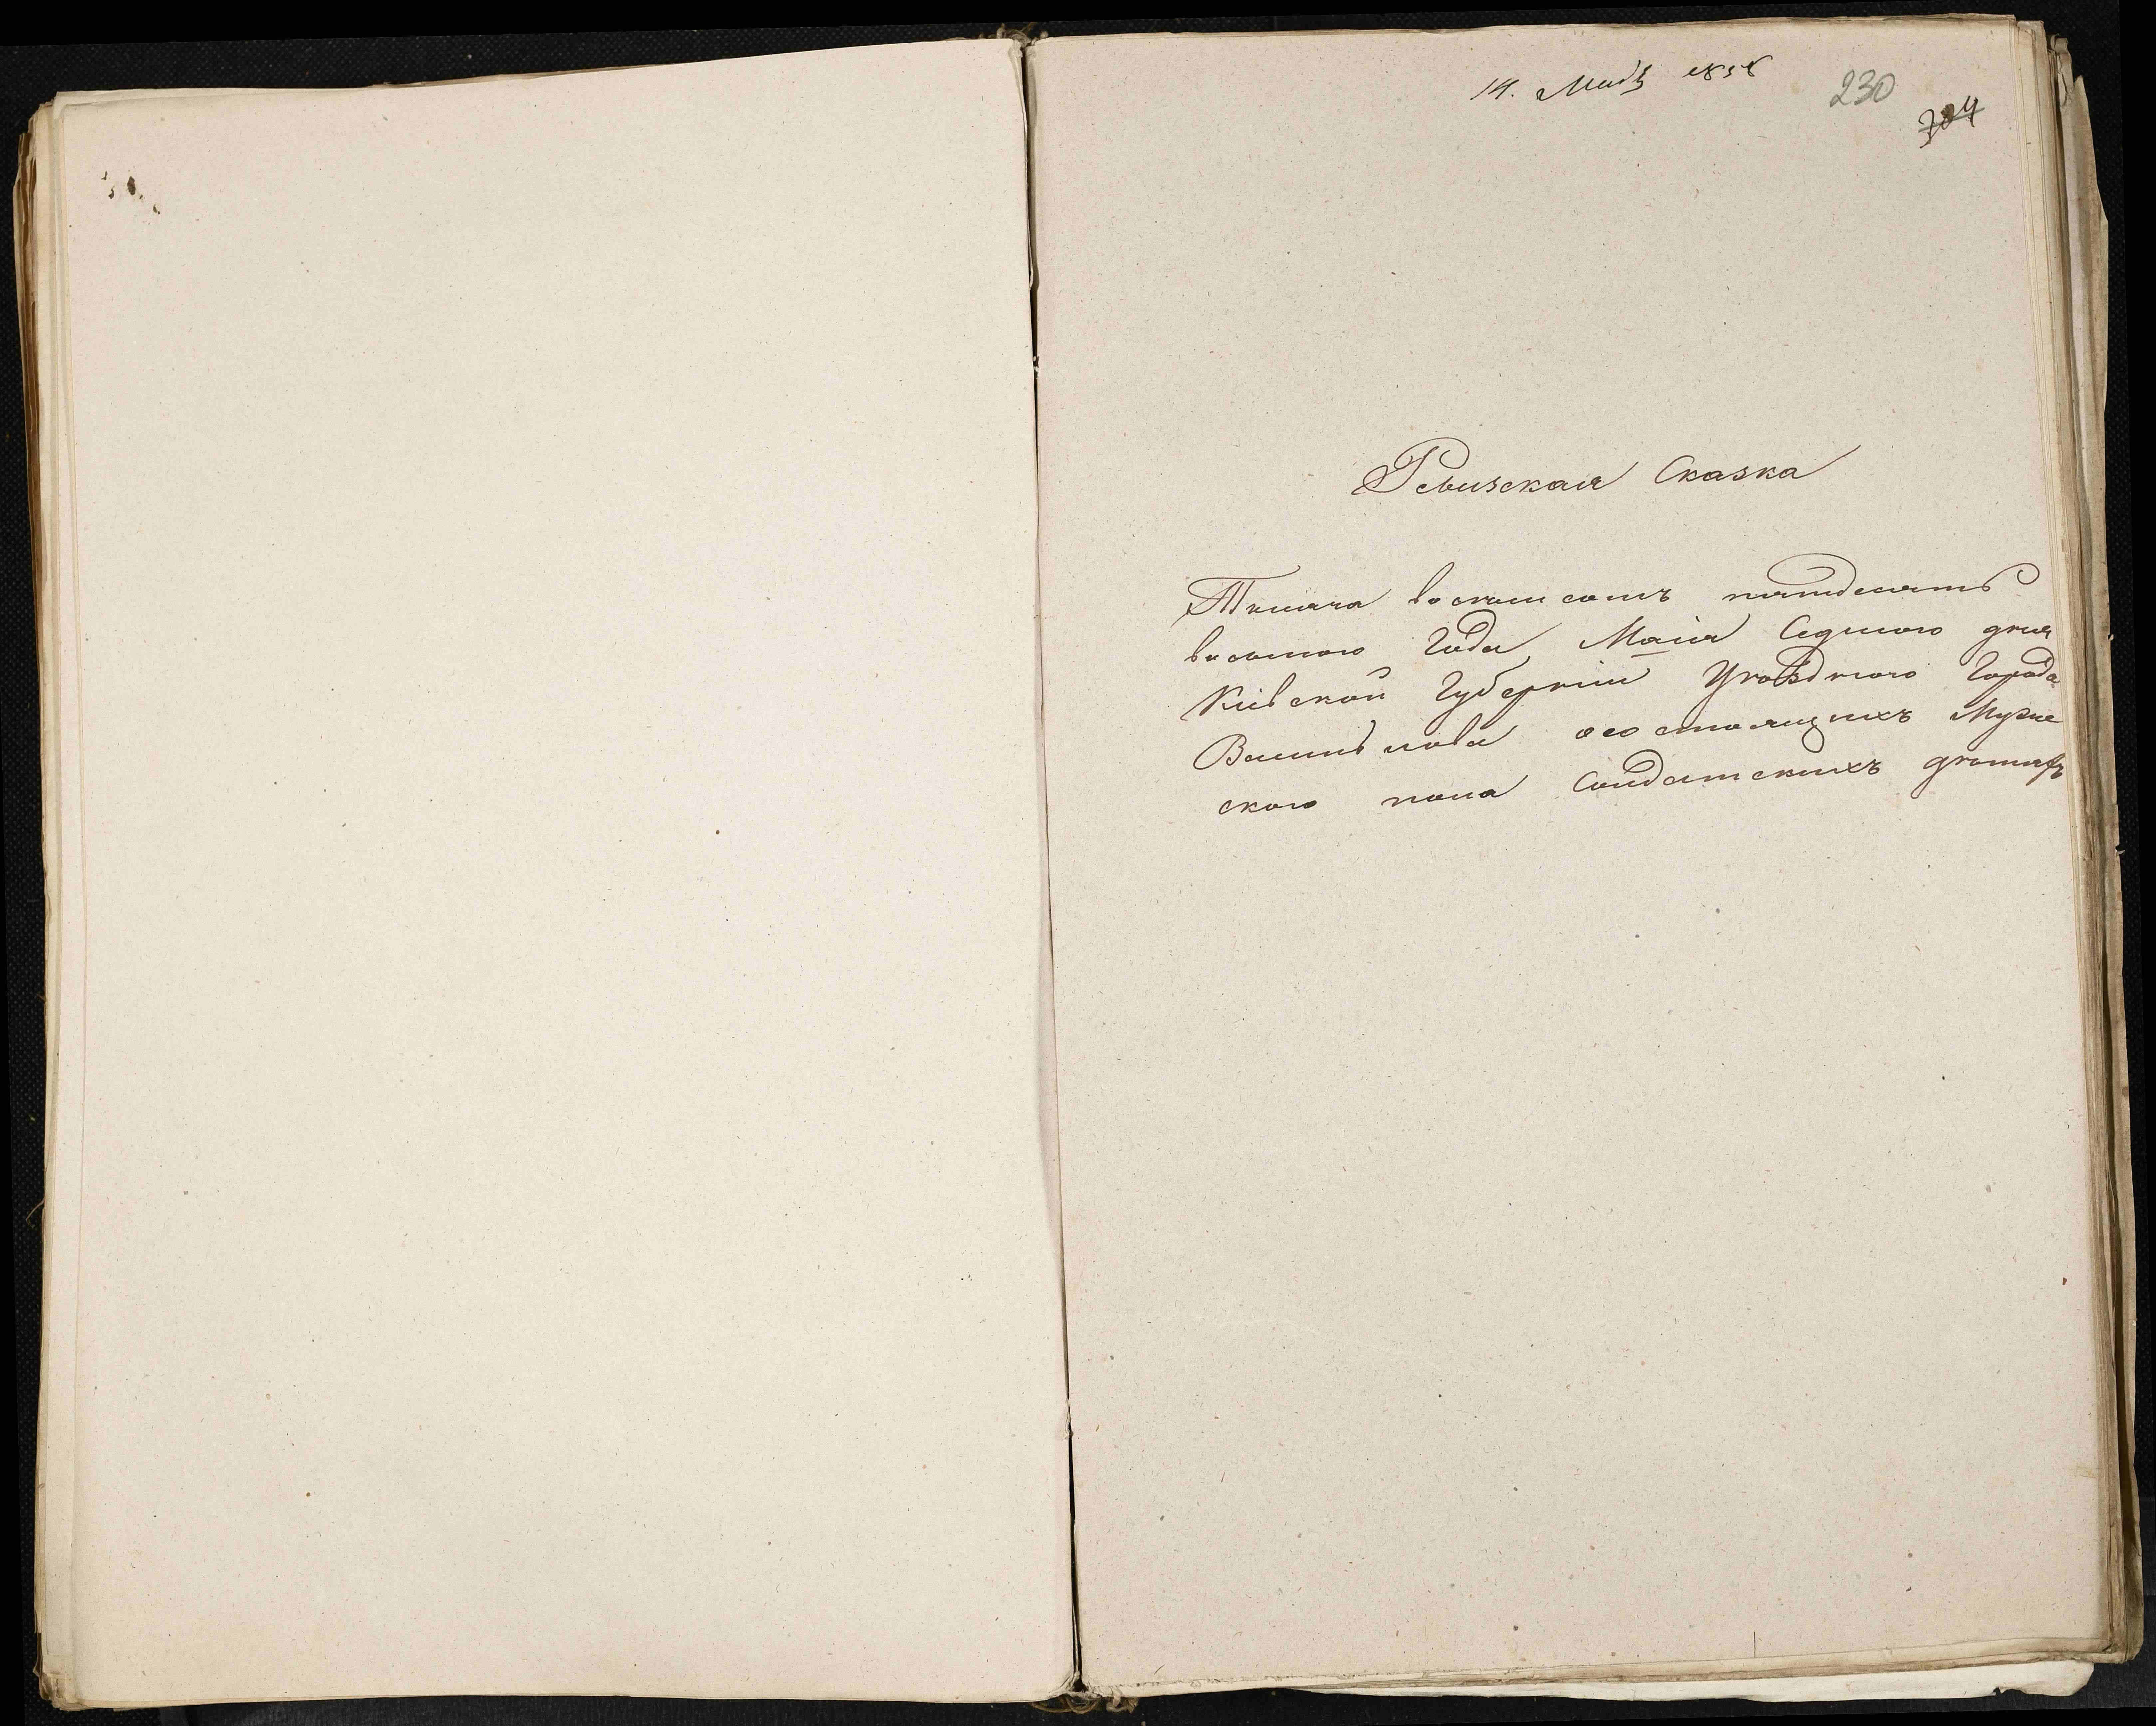 14. Маія 1858
230
304
Ревизская Сказка
Тысяча восемьсотъ пятдесятъ
восьмого Года Маія Седмого дня
Кіевской Губерніи Уѣзднаго Города
Василькова о состоящихъ Муже
ского пола Солдатскихъ дѣтяхъ